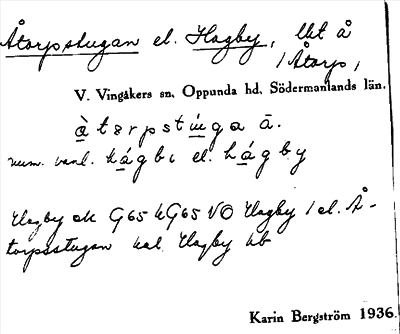 Åtorpsstugan el. Hagby, lht å
/ Åtorp,
V. Vingåkers sn. Oppunda hd. Södermanlands län.
àtɘrpstúga ā.
num. vanl. hágbɩ el. hágby
Hagby ek G65 hG65 VO Hagby / el. Å-
torpsstugan kal. Hagby hb
Karin Bergström 1936.